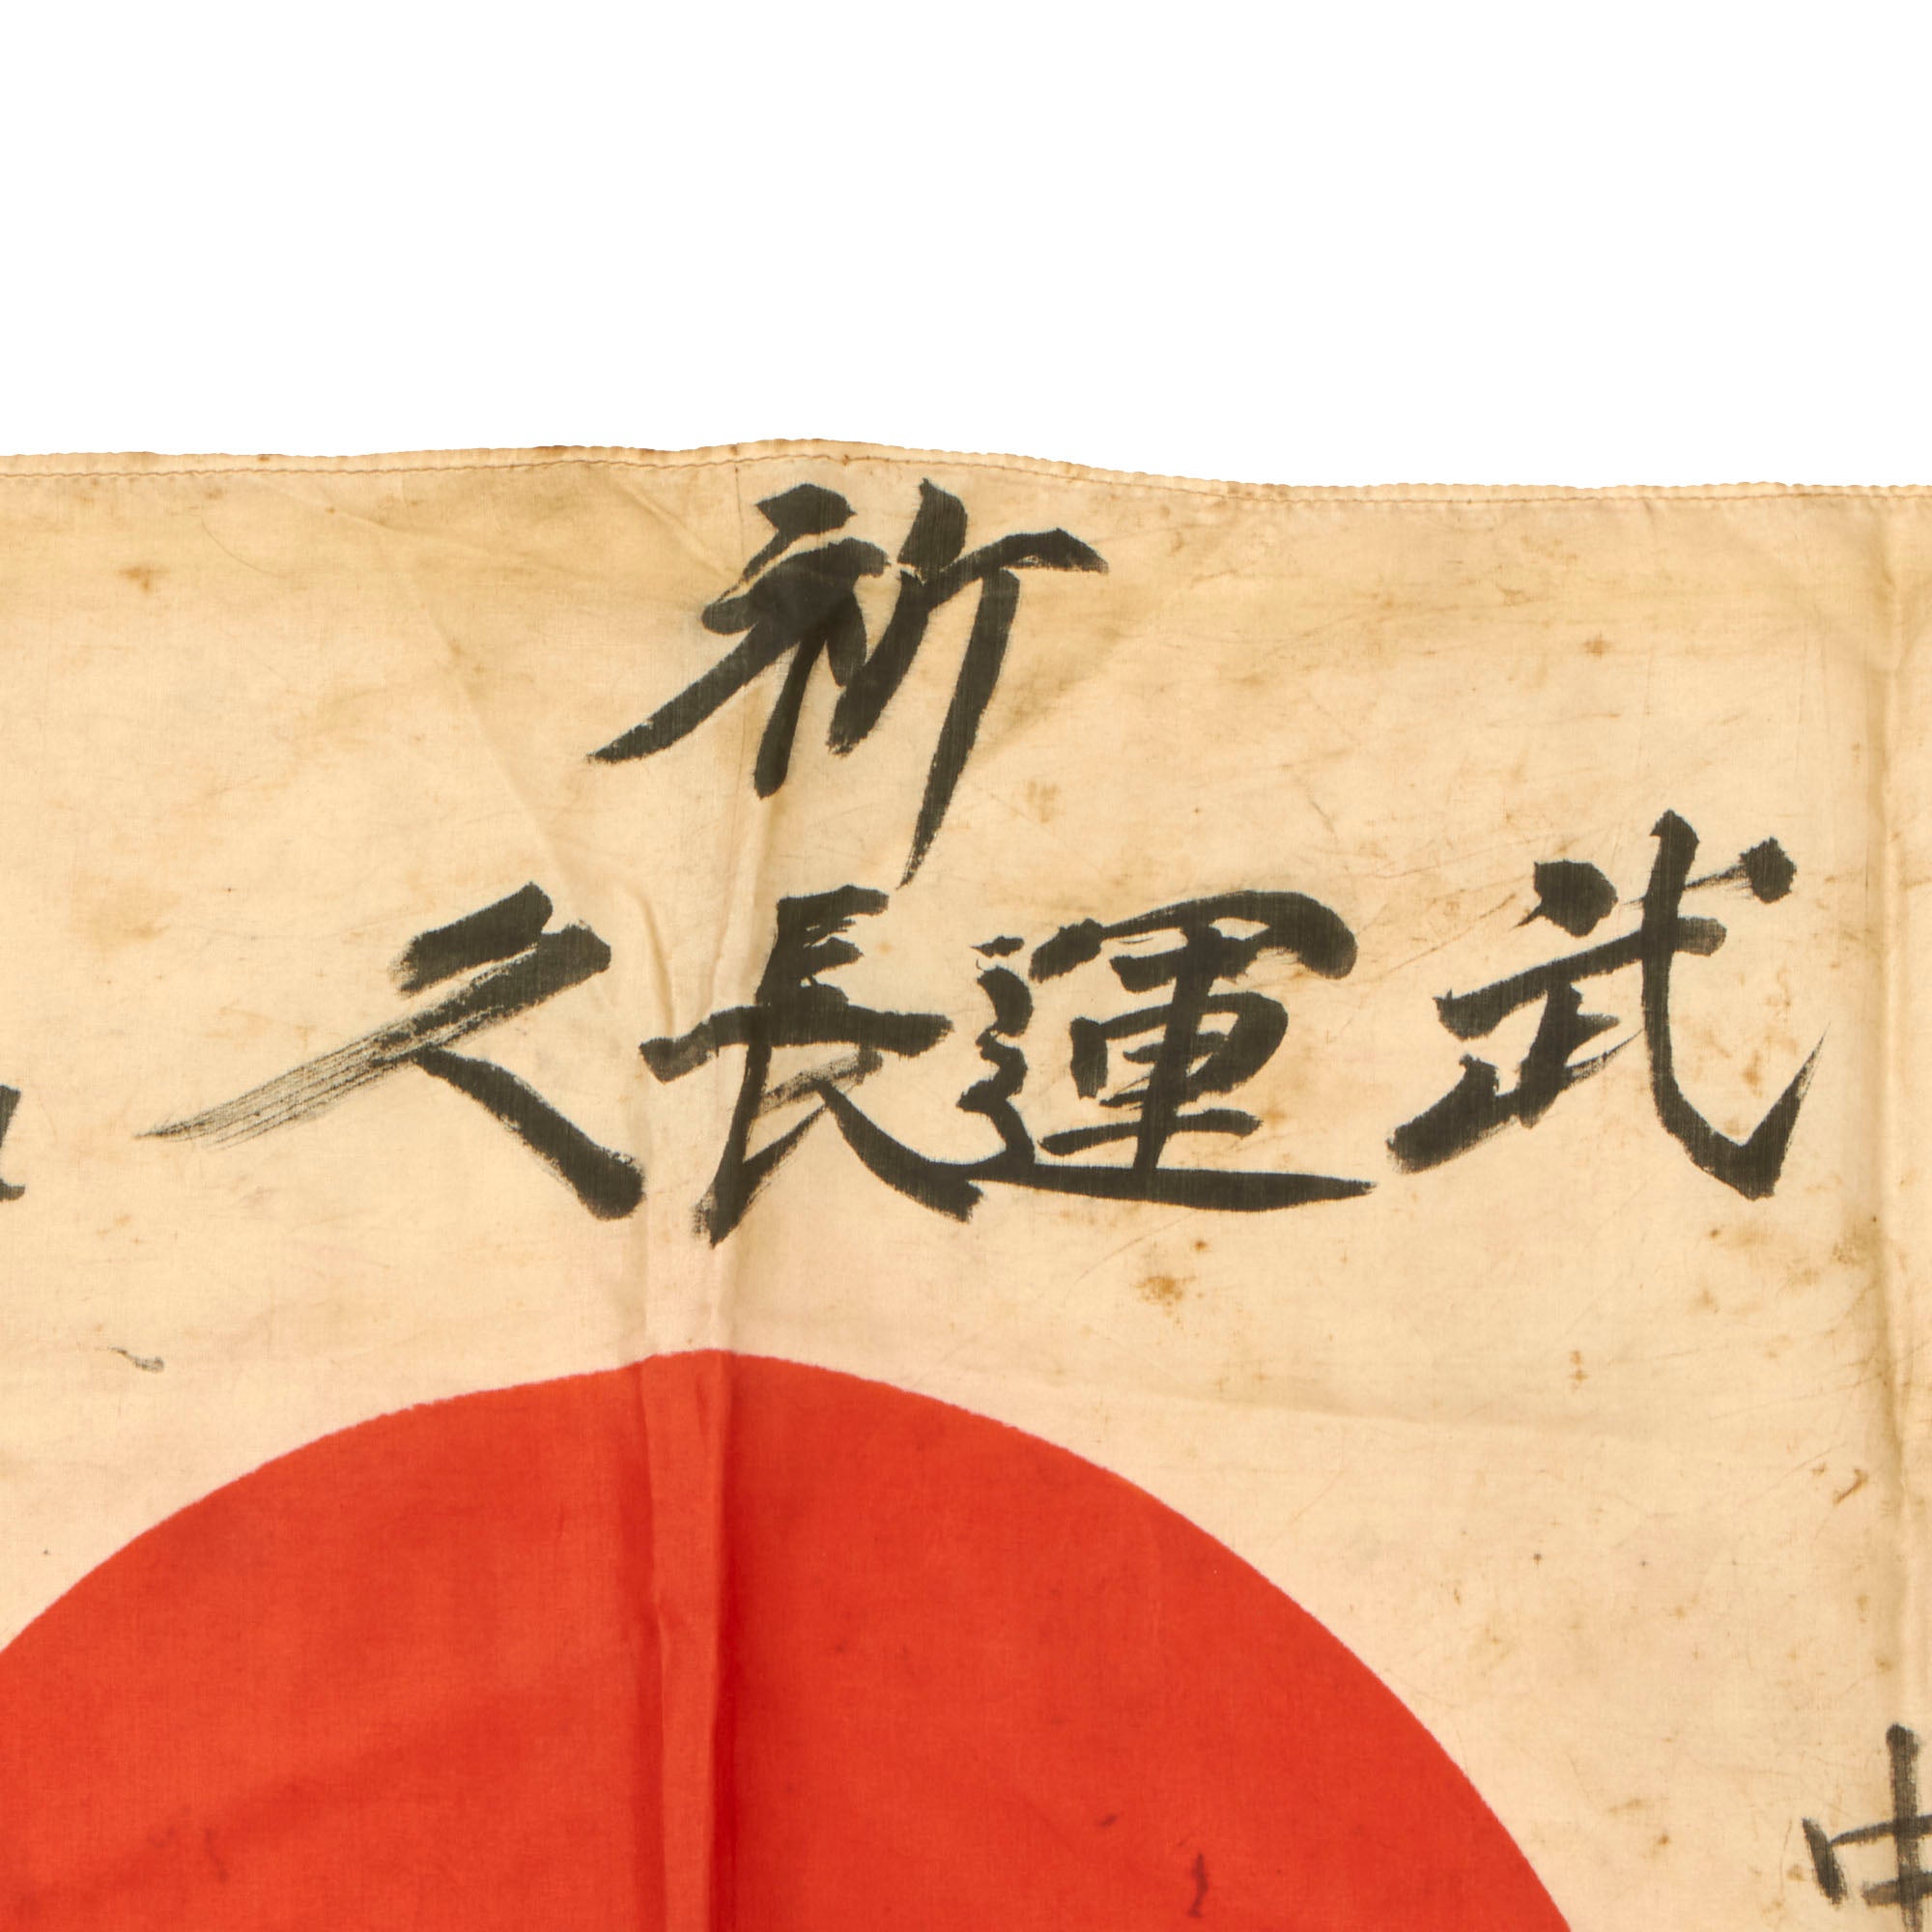 祈
武運長久